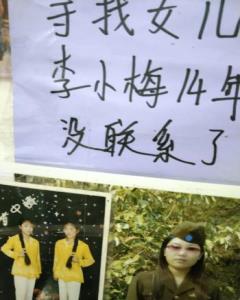 寻找女儿
李小梅14年
没联系了